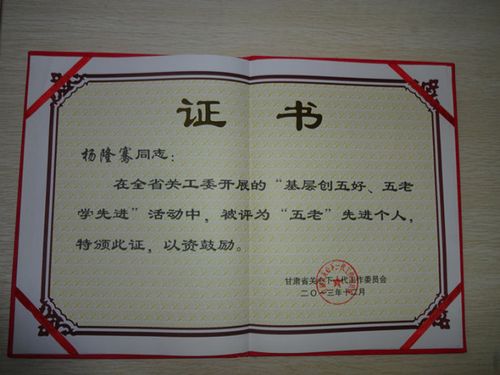 证书
杨隆骞同志:
在全省关工委开展的“基层创五好、五老
学先进”活动中,被评为“五老”先进个人,
特颁此证,以资鼓励。
甘肃省关心下一代工作委员会
二〇一三年十二月